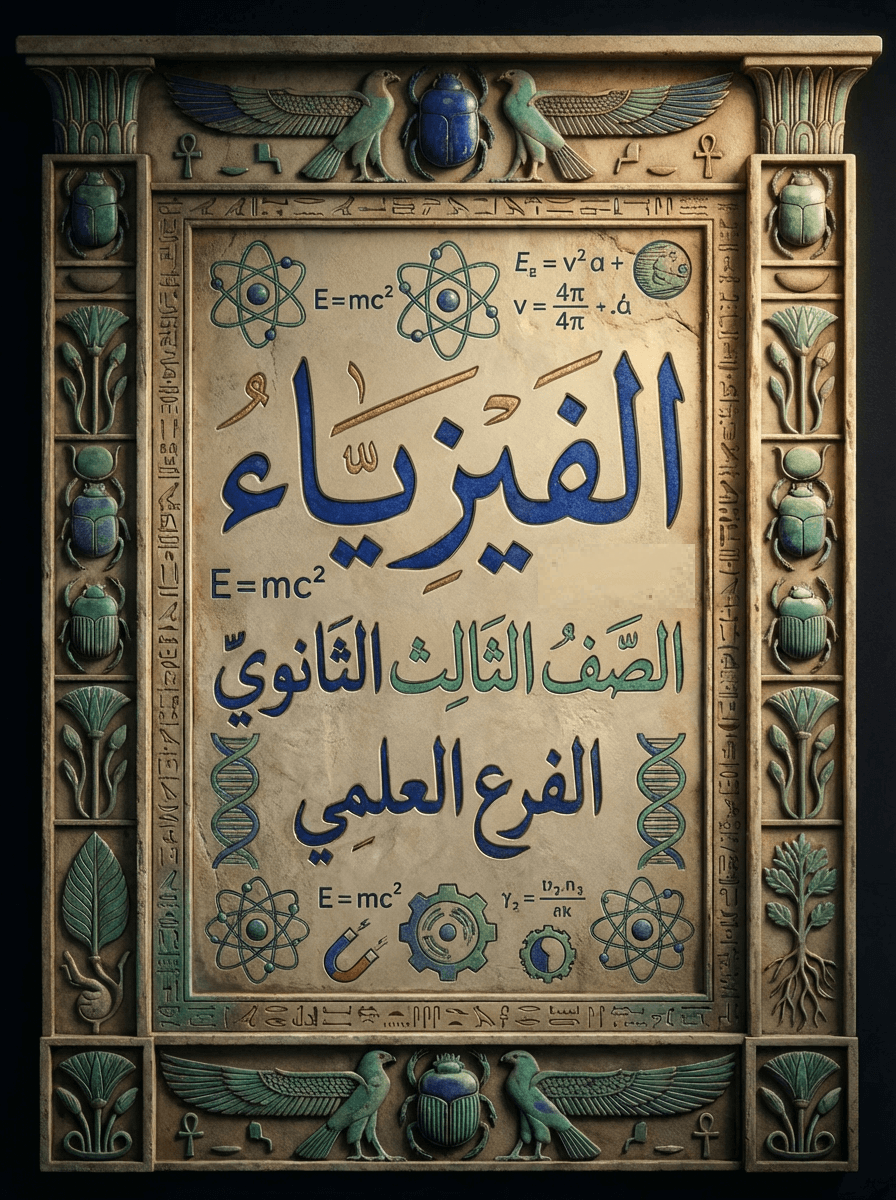 E=mc²
E₂ = v² a +
v = 4π/4π + .á
الفيزياء
E=mc²
الصَّفُ الثَالِث الثَانويّ
الفرع العلمِي
E=mc²
γ₂ = υ₂.n₃/aκ